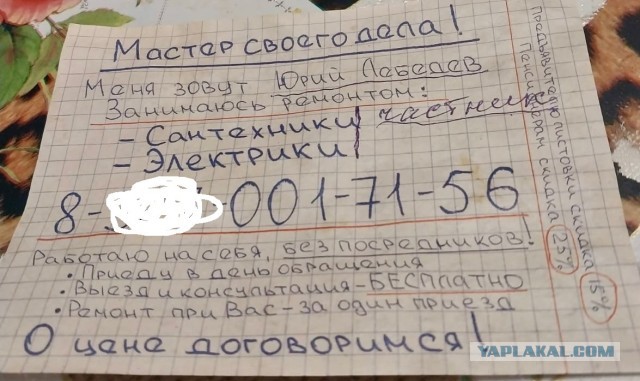 Мастер своего дела!
Меня зовут Юрий Лебедев
Занимаюсь ремонтом:
– Сантехники
– Электрики
частник
8- -001-71-56
Работаю на себя, без посредников!
• Приеду в день обращения
• Выезд и консультация – БЕСПЛАТНО
• Ремонт при Вас – за один приезд
О цене договоримся!
Предъявителю листовки скидка 15%
Пенсионерам скидка 25%
YAPLAKAL.COM